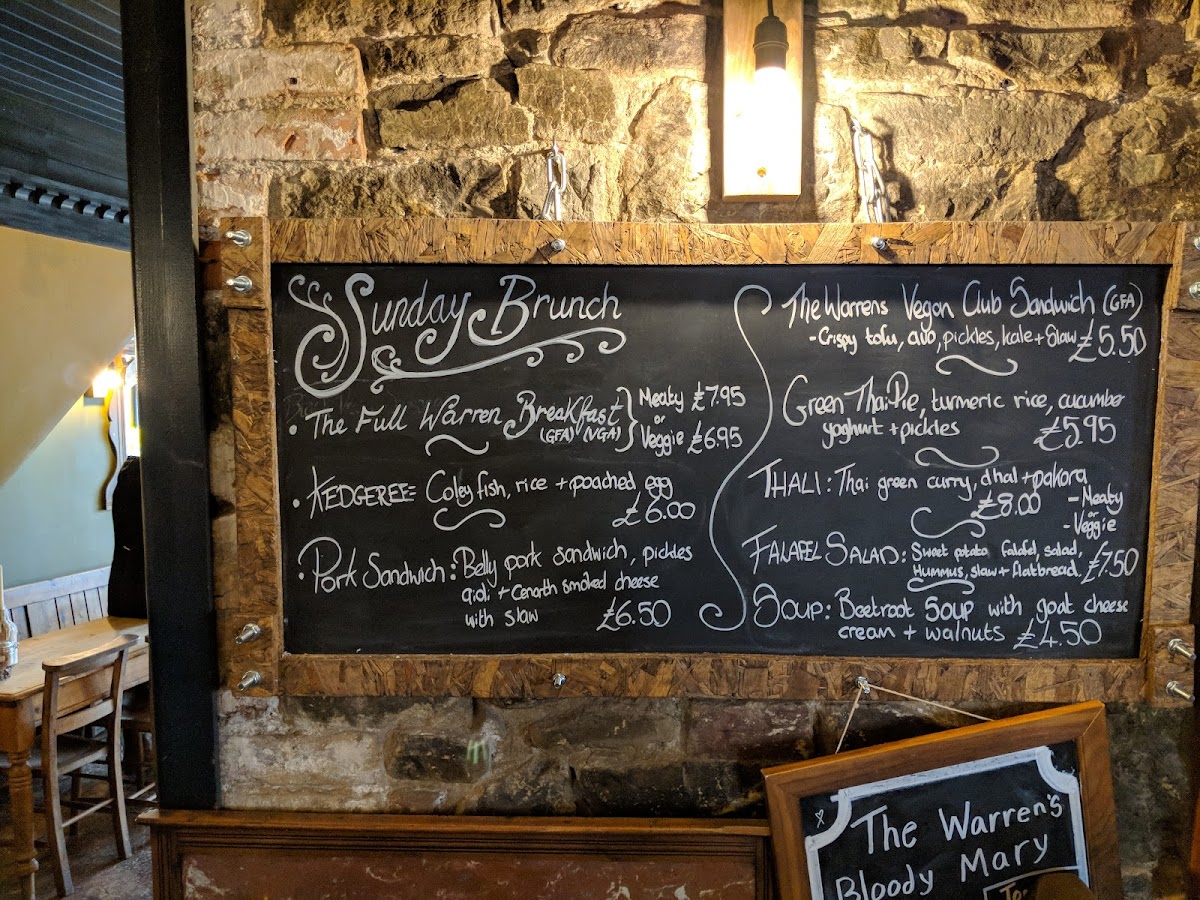 Sunday Brunch
• The Full Warren Breakfast } Meaty £7.95
(GFA) (VGA) or
Veggie £6.95
• KEDGEREE= Coley fish, rice + poached egg
£6.00
• Pork Sandwich: Belly pork sandwich, pickles
aioli + Cenarth smoked cheese
with slaw £6.50
The Warrens Vegan Club Sandwich (GFA)
- Crispy tofu, avo, pickles, kale + slaw £5.50
Green Thai Pie, turmeric rice, cucumber
yoghurt + pickles £5.95
THALI: Thai green curry, dhal + pakora
£8.00 - Meaty
or
- Veggie
FALAFEL SALAD: Sweet potato falafel, salad,
HUMMUS, slaw + flatbread. £7.50
Soup: Beetroot Soup with goat cheese
cream + walnuts £4.50
The Warren's
Bloody Mary
To: